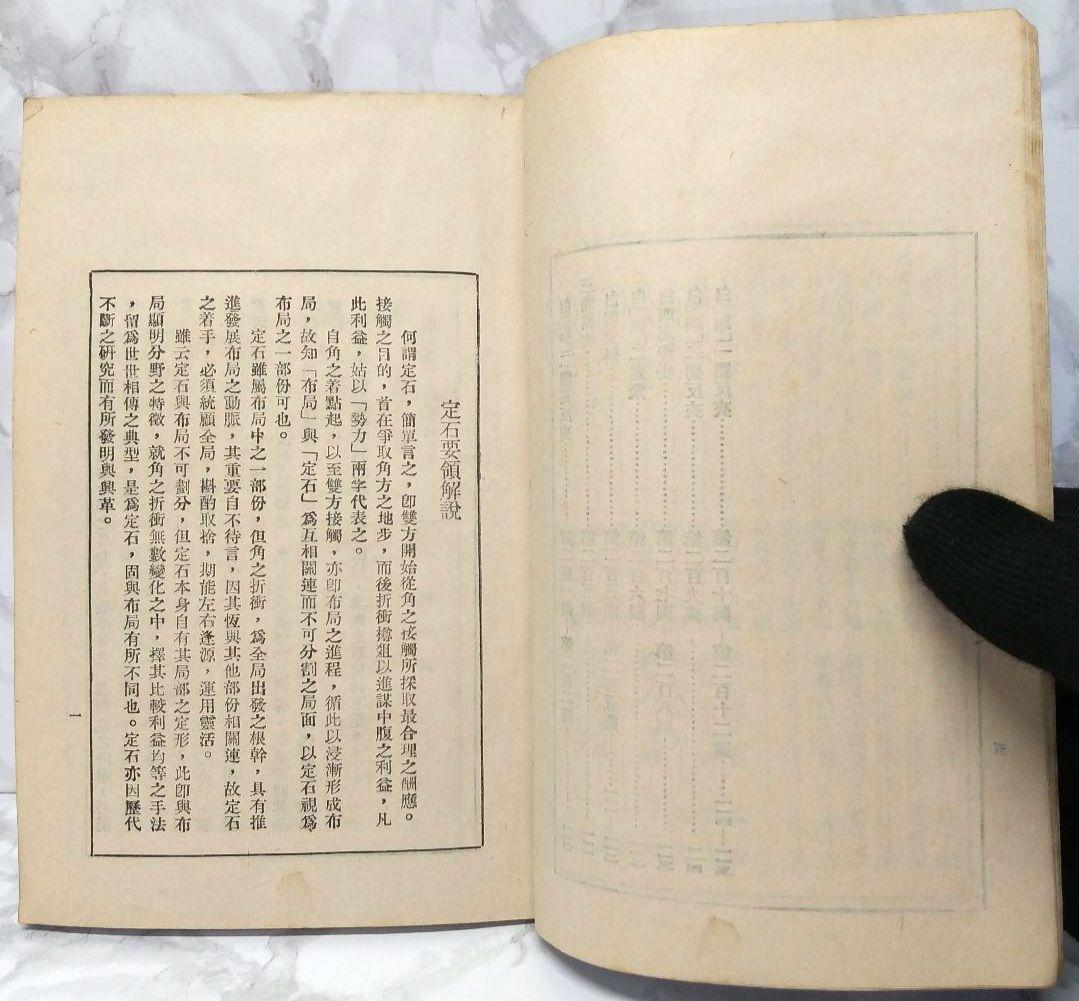 定石要領解說
何謂定石，簡單言之，卽雙方開始從角之接觸所採取最合理之酬應。
接觸之目的，首在爭取角方之地步，而後折衝撙俎以進謀中腹之利益，凡
此利益，姑以「勢力」兩字代表之。
自角之着點起，以至雙方接觸，亦卽布局之進程，循此以浸漸形成布
局，故知「布局」與「定石」爲互相關連而不可分割之局面，以定石視爲
布局之一部份可也。
定石雖屬布局中之一部份，但角之折衝，爲全局出發之根幹，具有推
進發展布局之動脈，其重要自不待言，因其恆與其他部份相關連，故定石
之着手，必須統顧全局，斟酌取捨，期能左右逢源，運用靈活。
雖云定石與布局不可劃分，但定石本身自有其局部之定形，此卽與布
局顯明分野之特徵，就角之折衝無數變化之中，擇其比較利益均等之手法
，留爲世世相傳之典型，是爲定石，固與布局有所不同也。定石亦因歷代
不斷之研究而有所發明與興革。
一